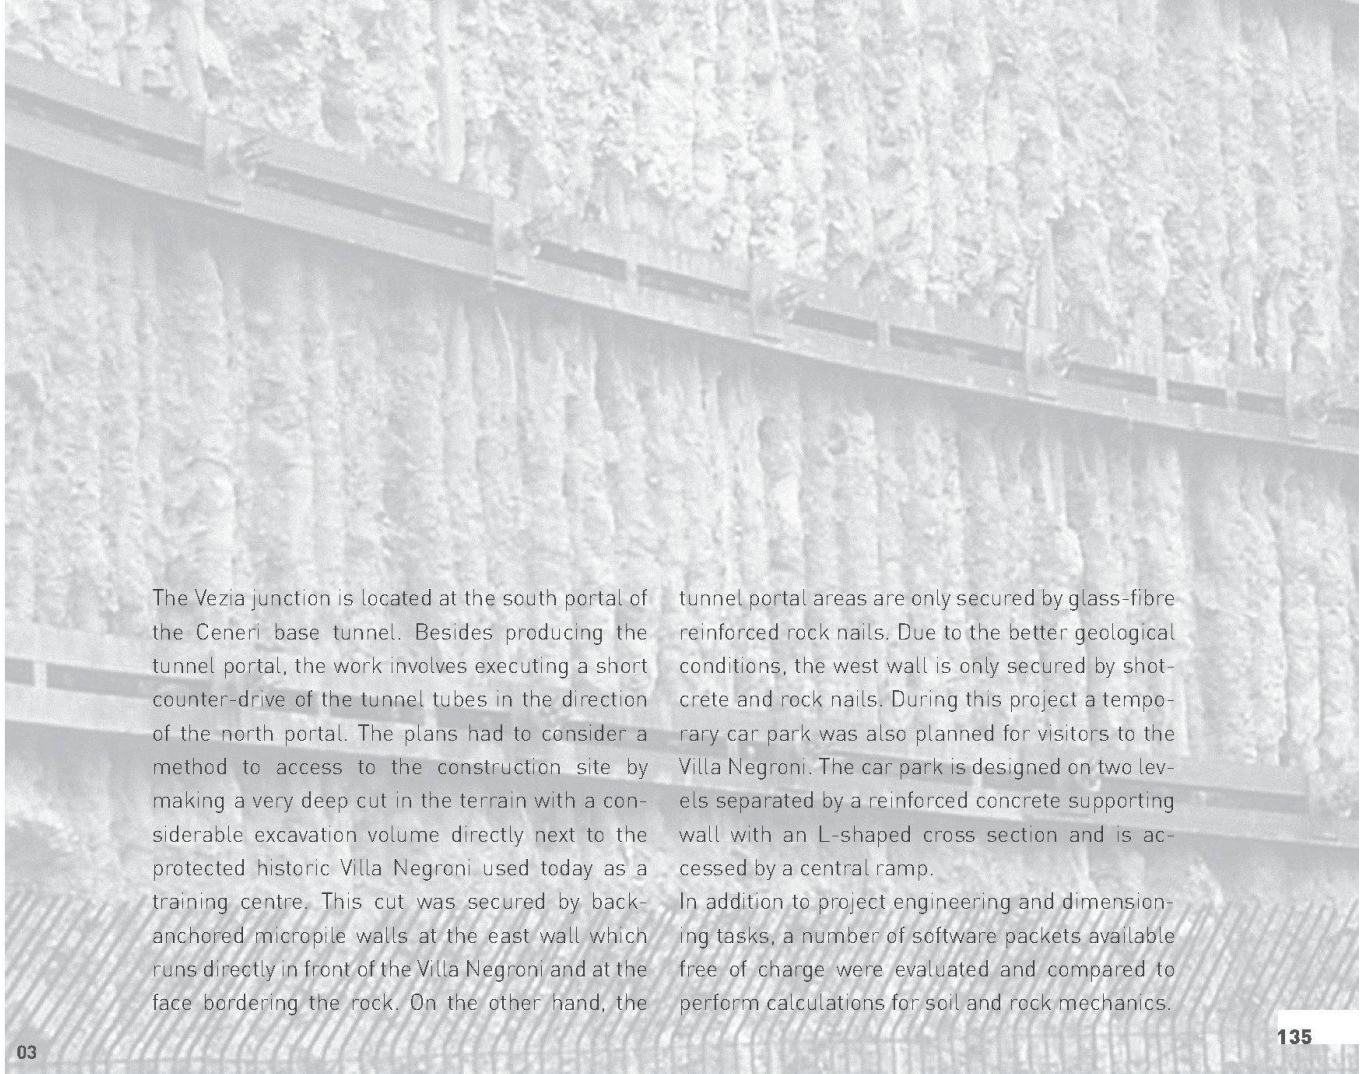 The Vezia junction is located at the south portal of
the Ceneri base tunnel. Besides producing the
tunnel portal, the work involves executing a short
counter-drive of the tunnel tubes in the direction
of the north portal. The plans had to consider a
method to access to the construction site by
making a very deep cut in the terrain with a con-
siderable excavation volume directly next to the
protected historic Villa Negroni used today as a
training centre. This cut was secured by back-
anchored micropile walls at the east wall which
runs directly in front of the Villa Negroni and at the
face bordering the rock. On the other hand, the
tunnel portal areas are only secured by glass-fibre
reinforced rock nails. Due to the better geological
conditions, the west wall is only secured by shot-
crete and rock nails. During this project a tempo-
rary car park was also planned for visitors to the
Villa Negroni. The car park is designed on two lev-
els separated by a reinforced concrete supporting
wall with an L-shaped cross section and is ac-
cessed by a central ramp.
In addition to project engineering and dimension-
ing tasks, a number of software packets available
free of charge were evaluated and compared to
perform calculations for soil and rock mechanics.
03
135